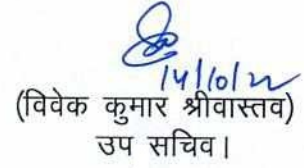 14/10/22
(विवेक कुमार श्रीवास्तव)
उप सचिव।